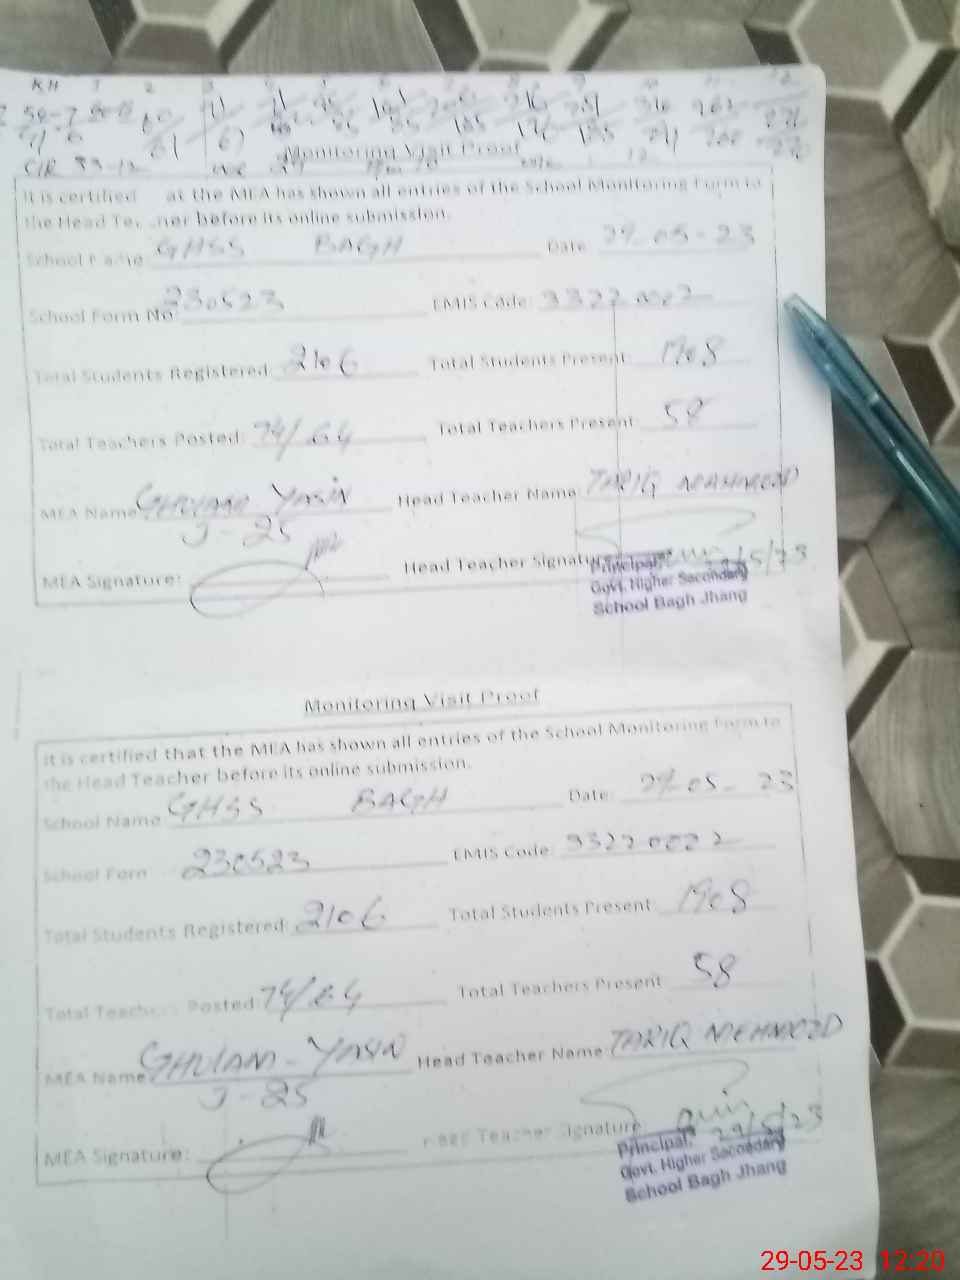 KH 1 2 3 4 5 6 7 8 9 10 11 12
Monitoring Visit Proof
It is certified at the MEA has shown all entries of the School Monitoring Form to
the Head Te ner before its online submission.
School Name GHSS BAGH Date 29-05-23
School Form No: 230523 EMIS Code: 33220022
Total Students Registered: 2106 Total Students Present: 1908
Total Teachers Posted: 74/64 Total Teachers Present: 58
MEA Name GHULAM YASIN Head Teacher Name: TARIQ MEHMOOD
J-25
MEA Signature: Head Teacher Signature 29/5/23
Principal,
Govt. Higher Secondary
School Bagh Jhang
Monitoring Visit Proof
It is certified that the MEA has shown all entries of the School Monitoring Form to
the Head Teacher before its online submission.
School Name GHSS BAGH Date: 29-05-23
School Form 230523 EMIS Code: 33220022
Total Students Registered: 2106 Total Students Present: 1908
Total Teachers Posted: 74/64 Total Teachers Present 58
MEA Name GHULAM-YASIN Head Teacher Name TARIQ MEHMOOD
J-25
MEA Signature: Head Teacher Signature 29/5/23
Principal,
Govt. Higher Secondary
School Bagh Jhang
29-05-23 12:20